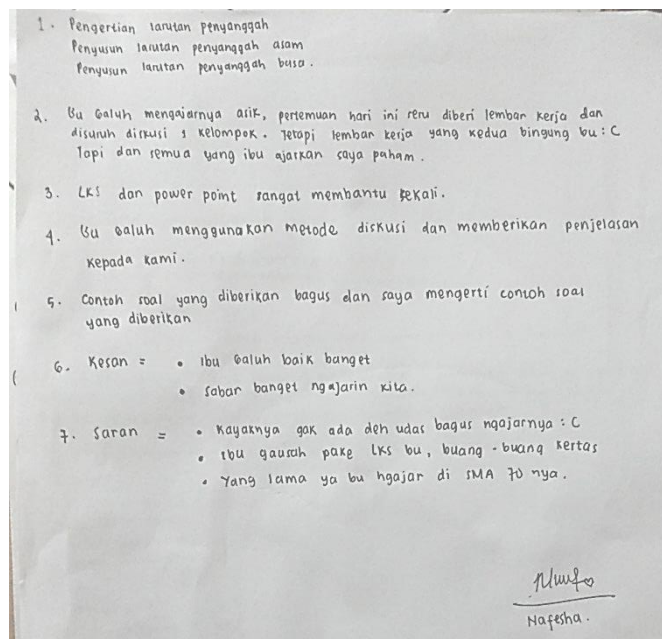 1. Pengertian larutan penyanggah
Penyusun larutan penyanggah asam
Penyusun larutan penyanggah basa.
2. Bu Galuh mengajarnya asik, pertemuan hari ini seru diberi lembar kerja dan
disuruh diskusi s kelompok. Tetapi lembar kerja yang kedua bingung bu :C
Tapi dan semua yang ibu ajarkan saya paham.
3. LKS dan power point sangat membantu sekali.
4. Bu Galuh menggunakan metode diskusi dan memberikan penjelasan
kepada kami.
5. Contoh soal yang diberikan bagus dan saya mengerti contoh soal
yang diberikan
6. Kesan = • Ibu Galuh baik banget
• Sabar banget ngajarin kita.
7. Saran = • Kayaknya gak ada deh udas bagus ngajarnya :C
• Ibu gausah pake LKS bu, buang-buang kertas
• Yang lama ya bu ngajar di SMA 70 nya.
Nafesha.